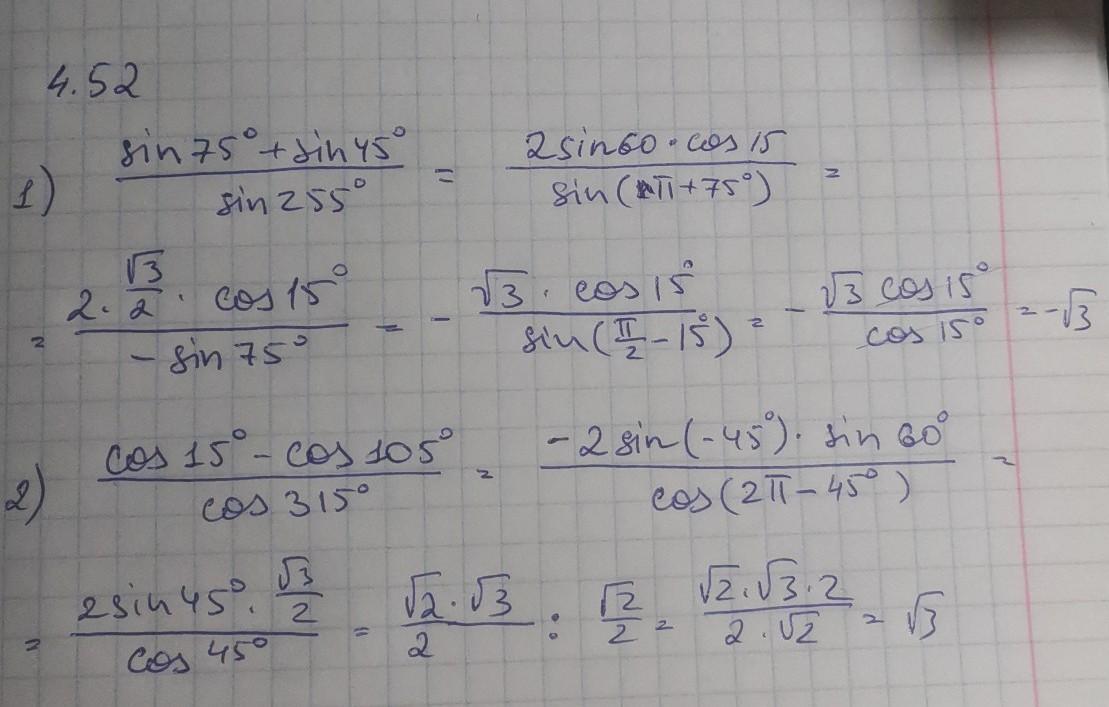 4.52
1) (sin 75° + sin 45°) / (sin 255°) = (2 sin 60 · cos 15) / (sin(π + 75°)) =
= (2 · √3/2 · cos 15°) / (- sin 75°) = - (√3 · cos 15°) / (sin(π/2 - 15°)) = - (√3 cos 15°) / (cos 15°) = -√3
2) (cos 15° - cos 105°) / (cos 315°) = (-2 sin(-45°) · sin 60°) / (cos(2π - 45°)) =
= (2 sin 45° · √3/2) / (cos 45°) = (√2 · √3) / 2 : √2/2 = (√2 · √3 · 2) / (2 · √2) = √3